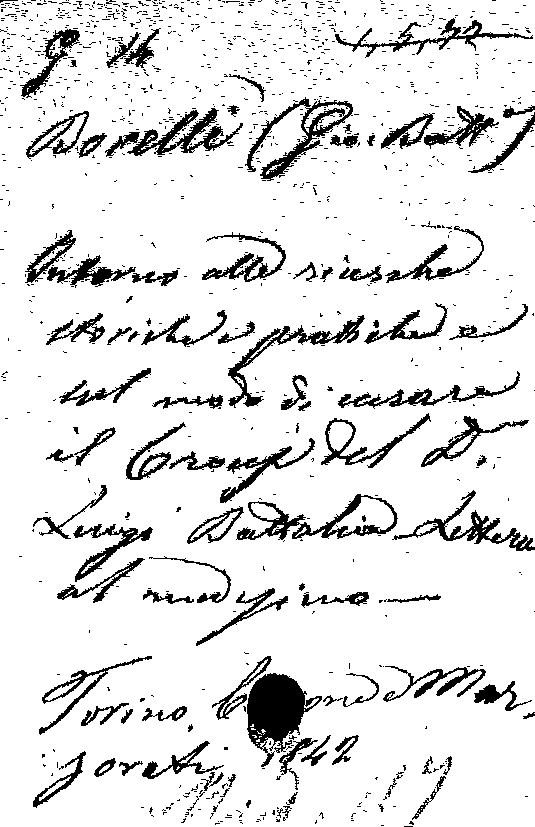 G. 14
1,5,72
Borelli (Gio. Batt.a)
Intorno alle ricerche
storiche e pratiche e
sul modo di curare
il Croup del D.
Luigi Battalia Lettera
al medesimo —
Torino, e Mar-
zorati, 1842